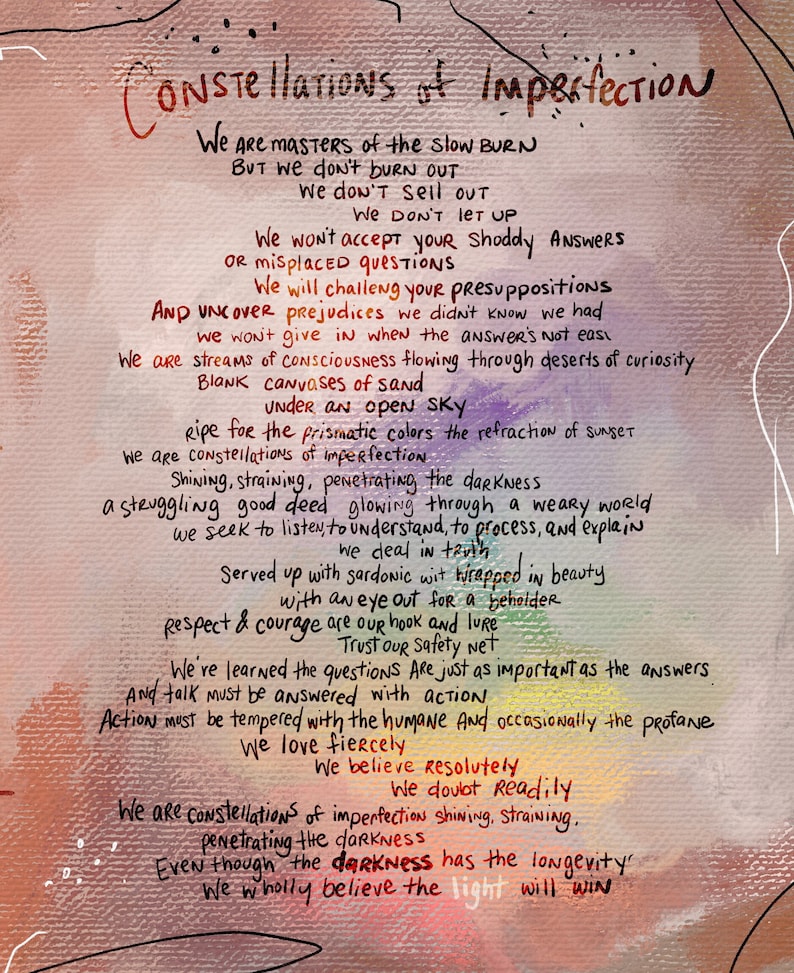 Constellations of Imperfection
We are masters of the slow burn
But we don't burn out
We don't sell out
We don't let up
We won't accept your shoddy answers
or misplaced questions
We will challeng your presuppositions
And uncover prejudices we didn't know we had
we won't give in when the answer's not easy
We are streams of consciousness flowing through deserts of curiosity
Blank canvases of sand
under an open sky
Ripe for the prismatic colors the refraction of sunset
we are constellations of imperfection
Shining, straining, penetrating the darkness
a struggling good deed glowing through a weary world
we seek to listen, to understand, to process, and explain
we deal in truth
Served up with sardonic wit wrapped in beauty
with an eye out for a beholder
respect & courage are our hook and lure
Trust our safety net
We've learned the questions are just as important as the answers
And talk must be answered with action
Action must be tempered with the humane and occasionally the profane
We love fiercely
We believe resolutely
We doubt readily
We are constellations of imperfection shining, straining,
penetrating the darkness
Even though the darkness has the longevity
We wholly believe the light will win